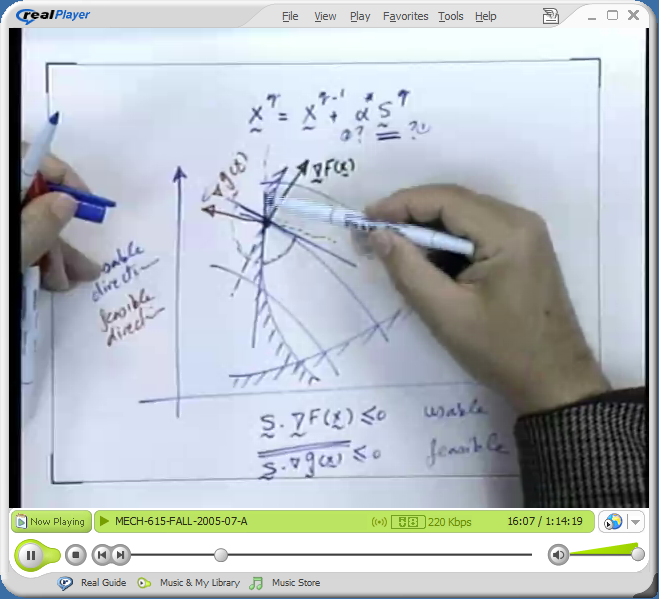 realPlayer
File View Play Favorites Tools Help
X^q = X^{q-1} + α* S^q
① ? ?①
∇g(x) ∇F(x)
usable
direct
feasible
direct
S · ∇F(x) ≤ 0 usable
S · ∇g(x) ≤ 0 feasible
Now Playing MECH-615-FALL-2005-07-A 220 Kbps 16:07 / 1:14:19
Real Guide Music & My Library Music Store